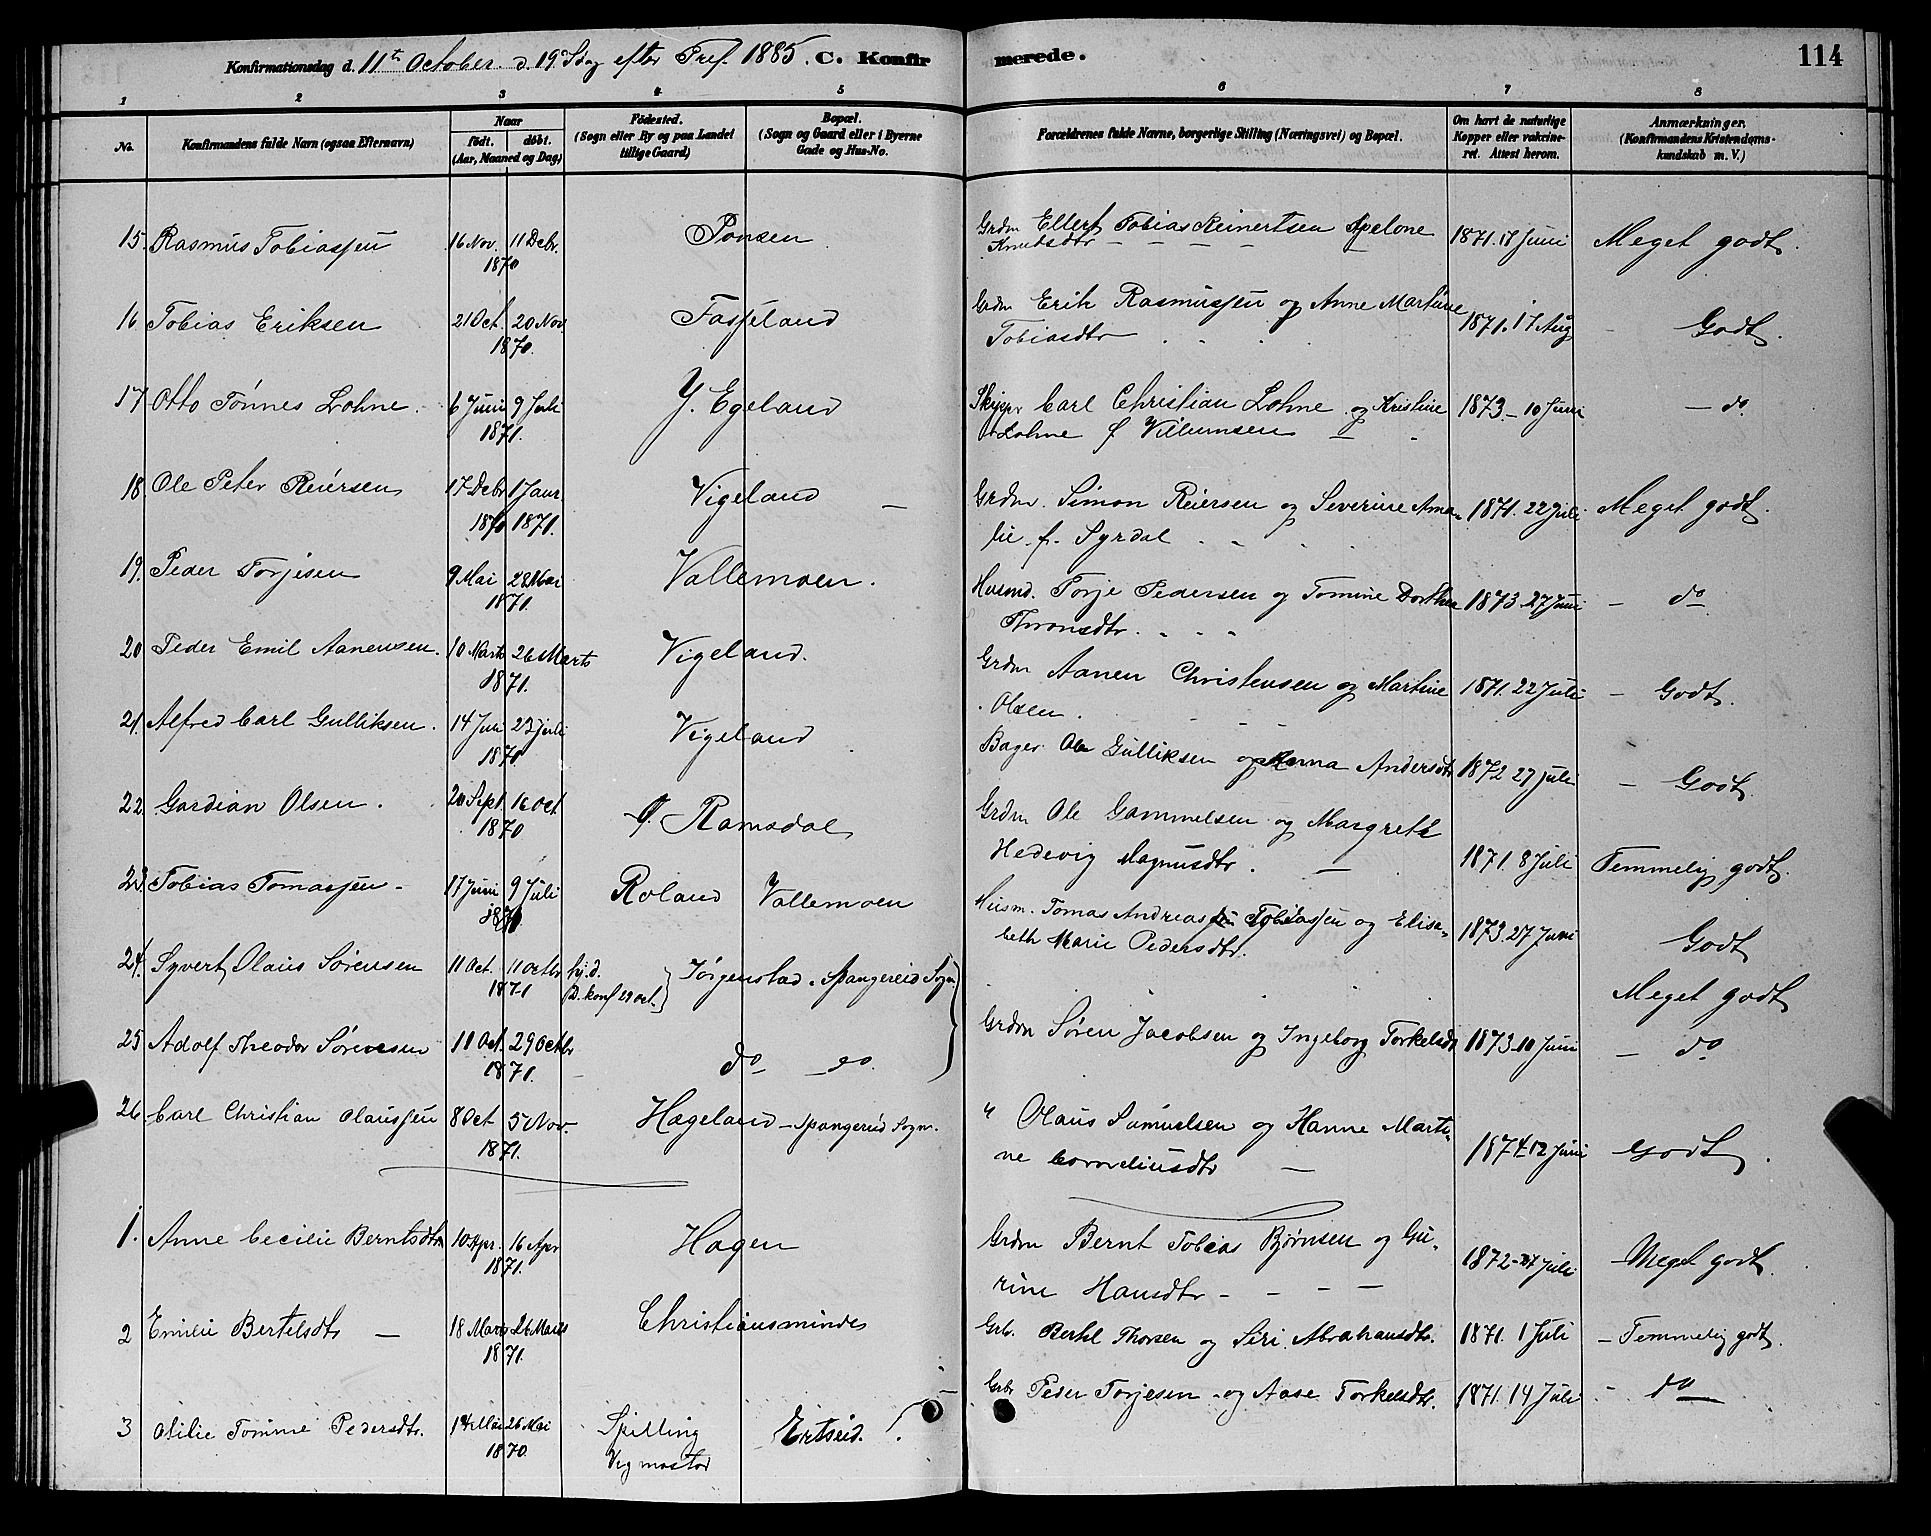 Konfirmationsdag d. 11te October. d. 19. Sdg efter Tref. 1885. C. Konfirmerede. 114
1 2 3 4 5 6 7 8
No. Konfirmandens fulde Navn (ogsaa Efternavn) Naar født. døbt. (Aar, Maaned og Dag) Fødested. (Sogn eller By og paa Landet tillige Gaard) Bopæl. (Sogn og Gaard eller i Byerne Gade og Hus-No. Forældrenes fulde Navne, borgerlige Stilling (Næringsvei) og Bopæl. Om havt de naturlige Kopper eller vakcineret. Attest herom. Anmærkninger, (Konfirmandens Kristendomskundskab m. V.)
15. Rasmus Tobiassen 16 Nov. 11 Debr. 1870 Ponsen Grdm Tobias Reinertsen
Knudsdtr 1871. 17 Juni Meget godt.
16 Tobias Eriksen 21 Oct. 20 Nov 1870. Fasseland Grdm Erik Rasmussen og Anne Martine
Tobiasdtr 1871. 17 Aug Godt.
17 Otto Tønnes Lohne. 6 Juni 9 Juli 1871. Y. Egeland Skippr Carl Christian Lohne og Kristine
Lohne f Villumsen 1873 - 10 Juni - do
18. Ole Peter Reiersen 17 Debr 1 Janr. 1870 1871. Vigeland - Grdm. Simon Reiersen og Severine Ama-
lie f. Syrdal 1871. 22 Juli Meget godt.
19. Peder Torjesen 9 Mai 28 Mai 1871. Vallemoen. Husmd. Torje Pedersen og Tomine Dorthea
Thronsdtr. 1873. 27 Juni - do
20 Peder Emil Aanensen. 10 Marts 26 Marts 1871. Vigeland. Grdm Aanen Christensen og Martine
Olsen. 1871. 22 Juli - Godt.
21. Alfred Carl Gulliksen. 14 Juni 23 juli 1870 Vigeland Bager. Ole Gulliksen og Anna Andersdtr 1872 27 juli - Godt
22. Gardian Olsen. 20 Sept 16 Oct 1870 Ramsdal Grdm Ole Gammelsen og Margrethe
Hedevig Magnusdtr. - 1871. 8 Juli Temmelig godt.
23. Tobias Tomassen - 17 Juni 9 Juli 1871 Roland Vallemoen Husm. Tomas Andreas Tobiassen og Elisa-
beth Marie Pedersdtr. 1873. 27 Juni Godt
24. Syvert Olaus Sørensen 11 Oct. 11 Octbr 1871 hj.d. D. konf 29 Oct. Jørgenstad. Spangereid Sogn Meget godt
25 Adolf Theodor Sørensen 11 Oct. 29 Octbr 1871. do - do. Grdm Søren Jacobsen og Ingeborg Torkelsdtr 1873 - 10 Juni - do
26 Carl Christian Olaussen 8 Oct 5 Nov. 1871. Hægeland - Spangereid Sogn. " Olaus Samuelsen og Hanne Marti-
ne Corneliusdtr - 1874 - 12 Juni Godt.
1. Anne Cecilie Berntsdtr 10 Apr. 16 Apr 1871. Hagen Grdm Bernt Tobias Bjørnsen og Gu-
rine Hansdtr - - - 1872 - 27 Juli - Meget godt.
2 Emilie Bertelsdtr - 18 Marts 26 Marts 1871. Christiansminde Grb. Bertel Thorsen og Siri Abrahamsdtr. 1871. 1 Juli - Temmelig godt.
3 Otilie Tomine Pedersdtr. 14 Mai 26 Mai 1870. Spilling
Vigmostad Ertseid. Grbr Peder Torjesen og Aase Torkelsdtr. 1871. 14 Juli - do